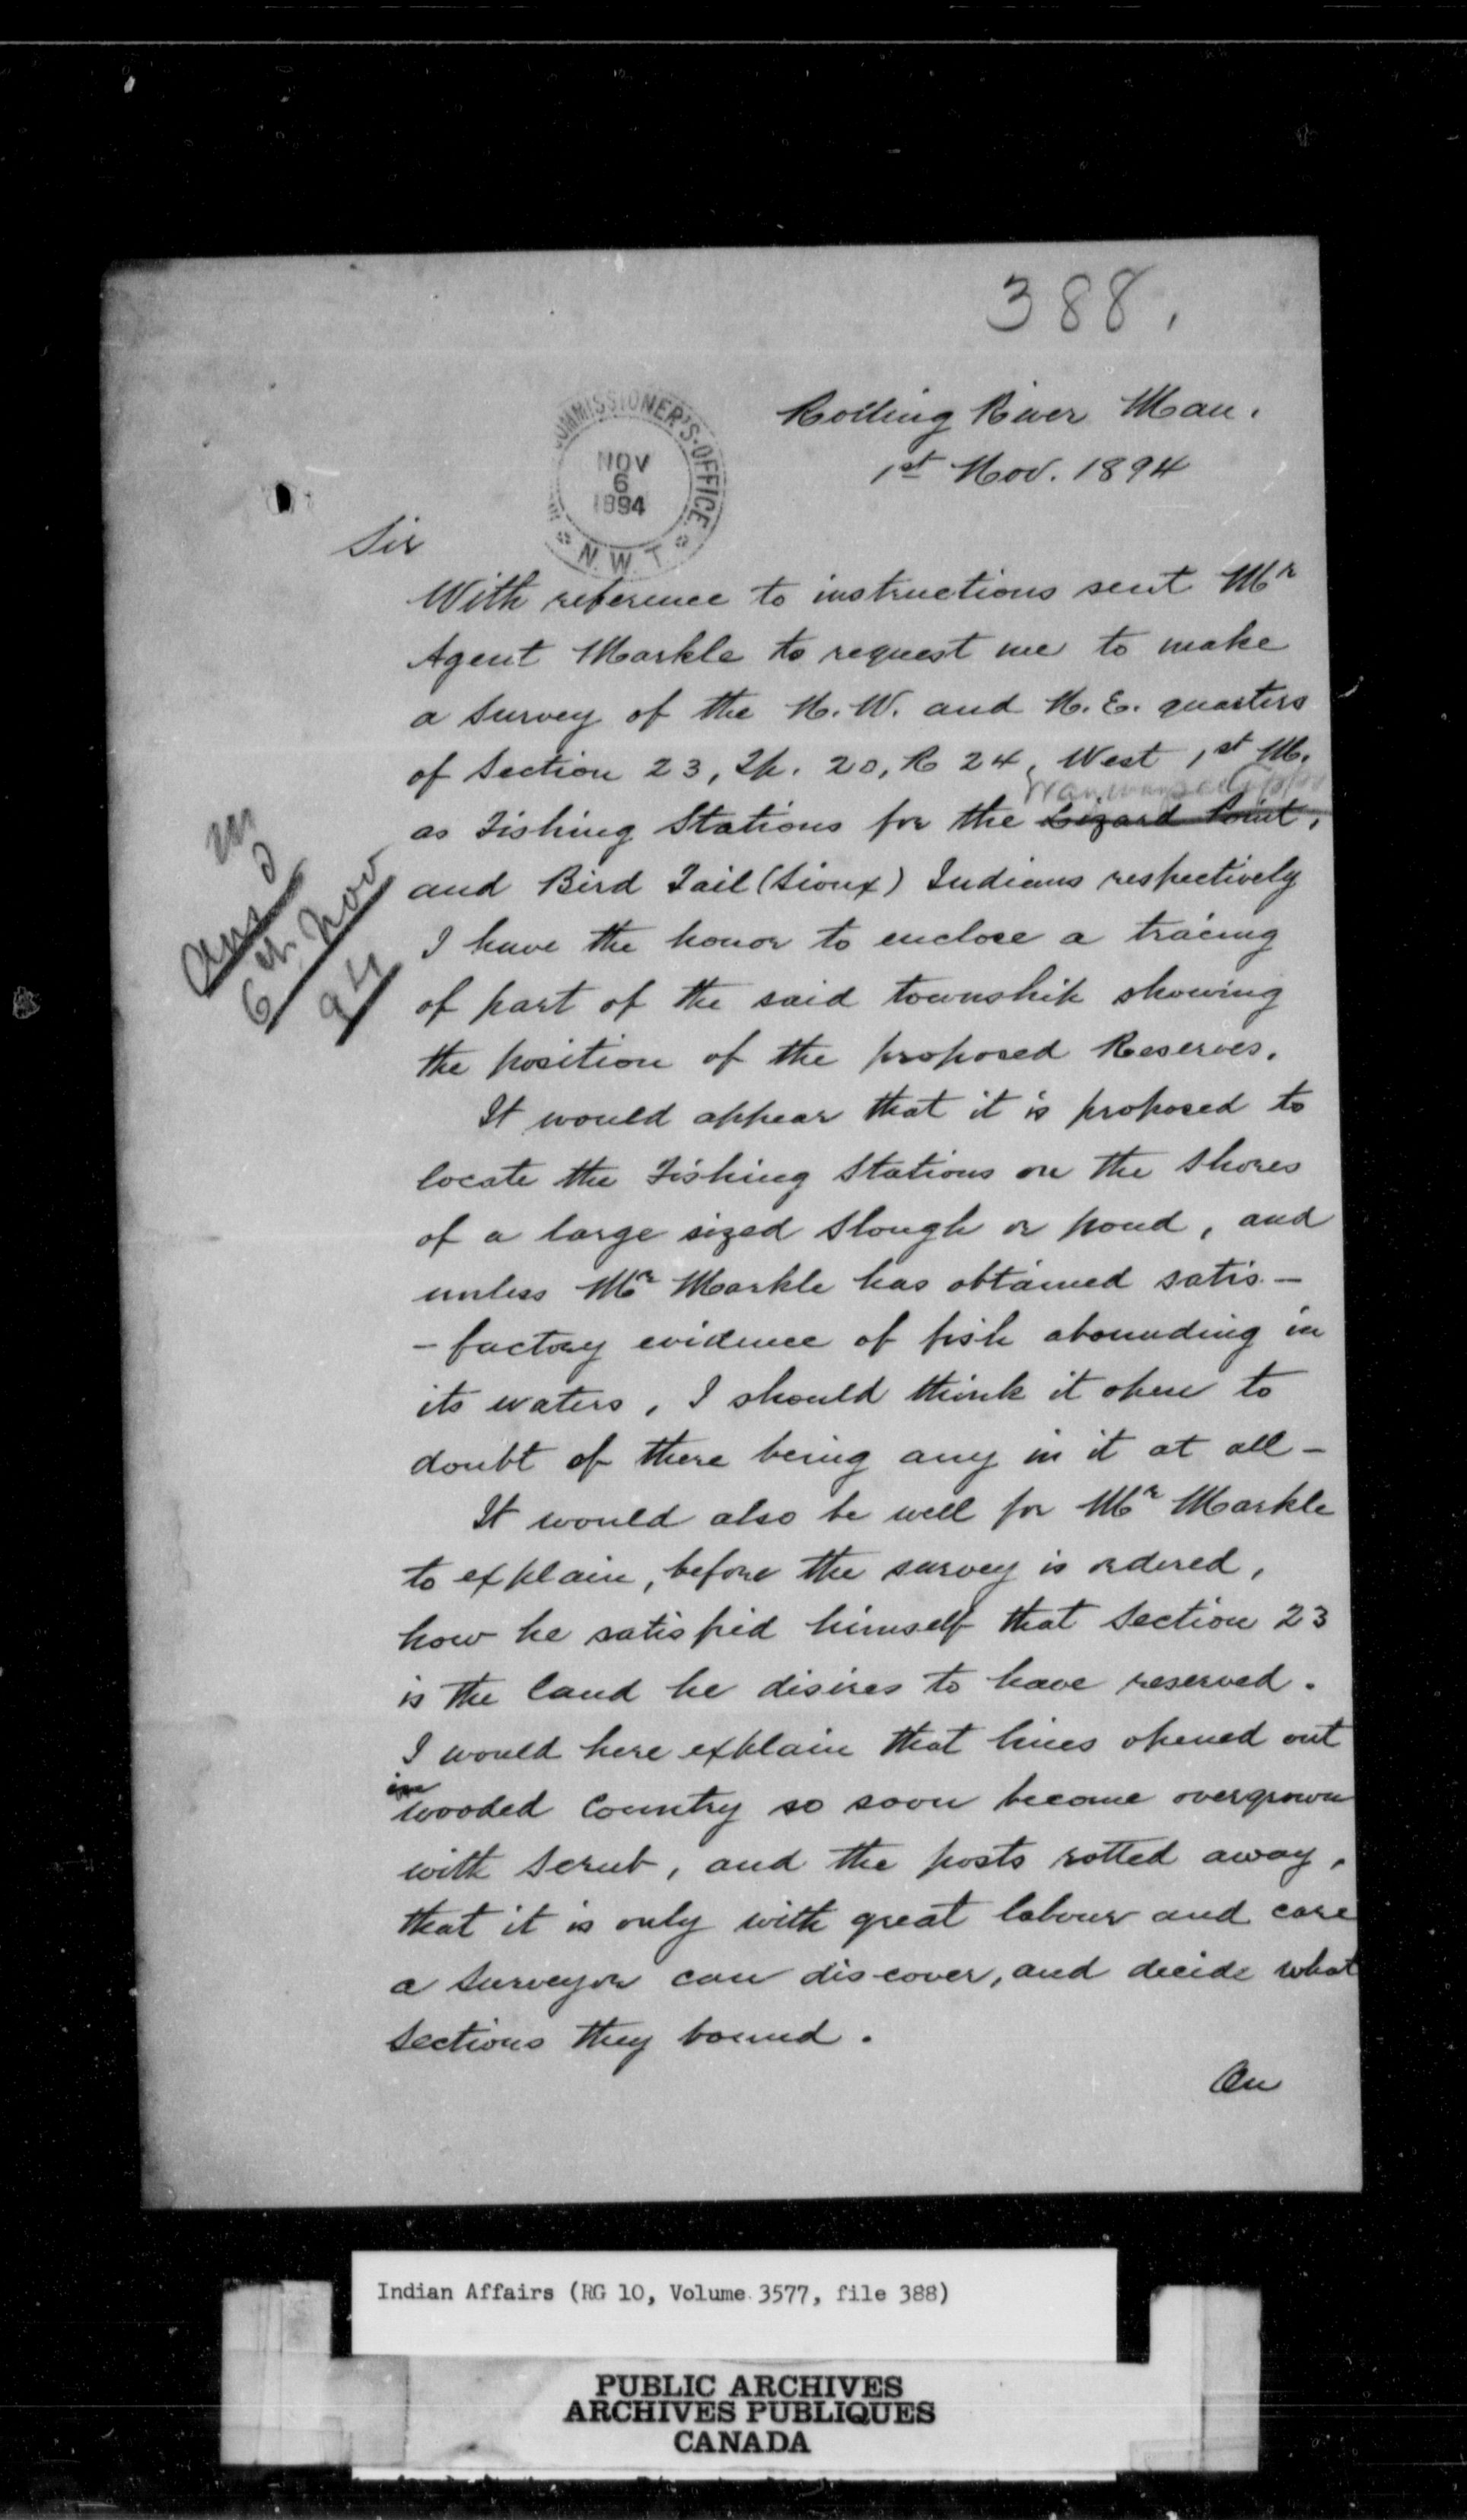 388.
COMMISSIONER'S OFFICE
NOV
6
1894
N.W.T
Rolling River Man.
1st Nov. 1894
Sir
With reference to instructions sent Mr
Agent Markle to request me to make
a survey of the N.W. and N.E. quarters
of Section 23, Tp. 20, R 24, West 1st M.
as Fishing Stations for the Lizard Point,
and Bird Tail (Sioux) Indians respectively
I have the honor to enclose a tracing
of part of the said township showing
the position of the proposed Reserves.
It would appear that it is proposed to
locate the Fishing Stations on the shores
of a large sized slough or pond, and
unless Mr Markle has obtained satis-
-factory evidence of fish abounding in
its waters, I should think it open to
doubt of there being any in it at all -
It would also be well for Mr Markle
to explain, before the survey is ordered,
how he satisfied himself that Section 23
is the land he disires to have reserved.
I would here explain that lines opened out
in
wooded Country so soon become overgrown
with scrub, and the posts rotted away,
that it is only with great labour and care
a surveyor can discover, and decide what
sections they bound.
On
Ansd
6th Nov
94
Indian Affairs (RG 10, Volume 3577, file 388)
PUBLIC ARCHIVES
ARCHIVES PUBLIQUES
CANADA